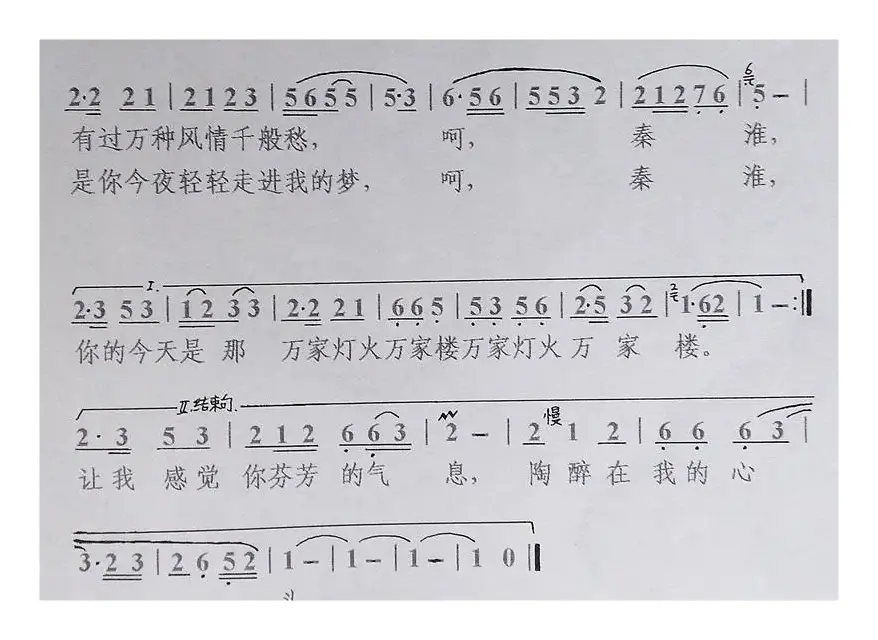 2·2 21 | 2123 | 5655 | 5·3 | 6·56 | 5532 | 21276 | 6 5 – |
有过万种风情千般愁， 呵， 秦 淮，
是你今夜轻轻走进我的梦， 呵， 秦 淮，
I.
2·3 53 | 12 33 | 2·2 21 | 665 | 53 56 | 2·5 32 | 2 1·62 | 1 – :‖
你的今天是 那 万家灯火万家楼万家灯火 万 家 楼。
II.结束句.
慢
2·3 53 | 212 663 | 2 – | 2 1 2 | 6 6 6 3 |
让我 感觉 你芬芳 的气 息， 陶 醉 在 我 的 心
3·23 | 2 6 52 | 1 – | 1 – | 1 – | 1 0 ‖